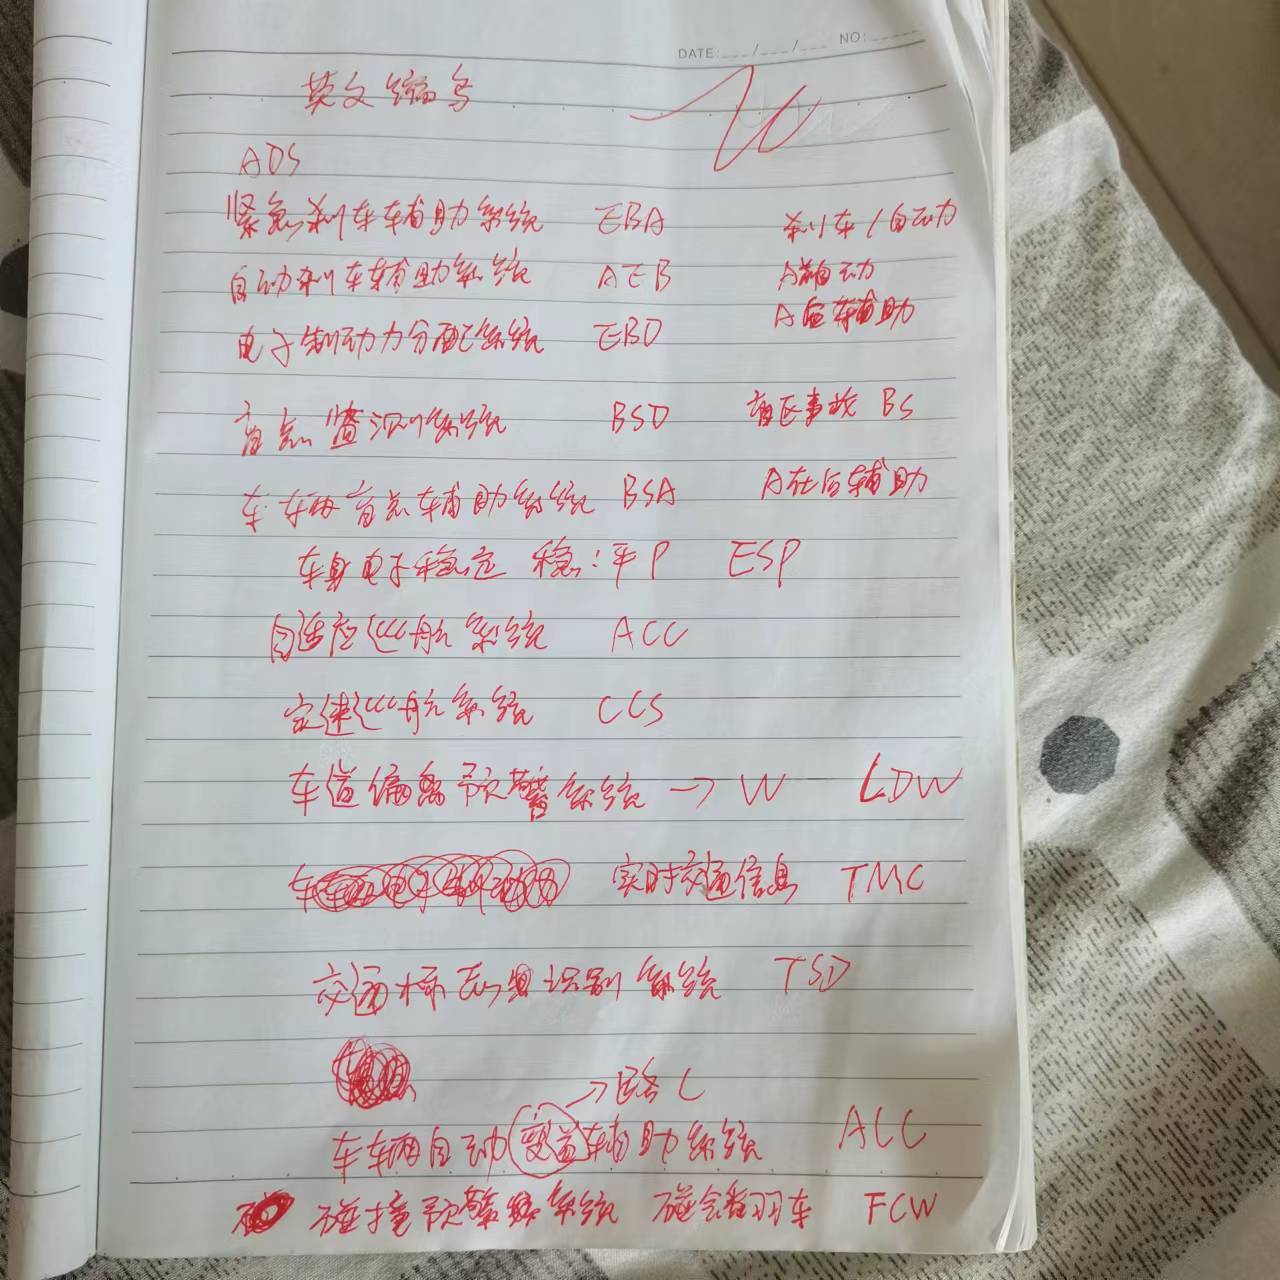 DATE:___/___/___ NO:_____
英文缩写
ADS
紧急刹车辅助系统 EBA 刹车/自动
自动刹车辅助系统 AEB A前自动
A后辅助
电子制动力分配系统 EBD
盲点监测系统 BSD 盲区事故 BS
车车辆盲点辅助系统 BSA A在后辅助
车身电子稳定 稳:平P ESP
自适应巡航系统 ACC
定速巡航系统 CCS
车道偏离预警系统 → W LDW
实时交通信息 TMC
交通标志识别系统 TSD
→ 路 L
车车辆自动变道辅助系统 ALC
碰撞预警系统 碰会翻车 FCW